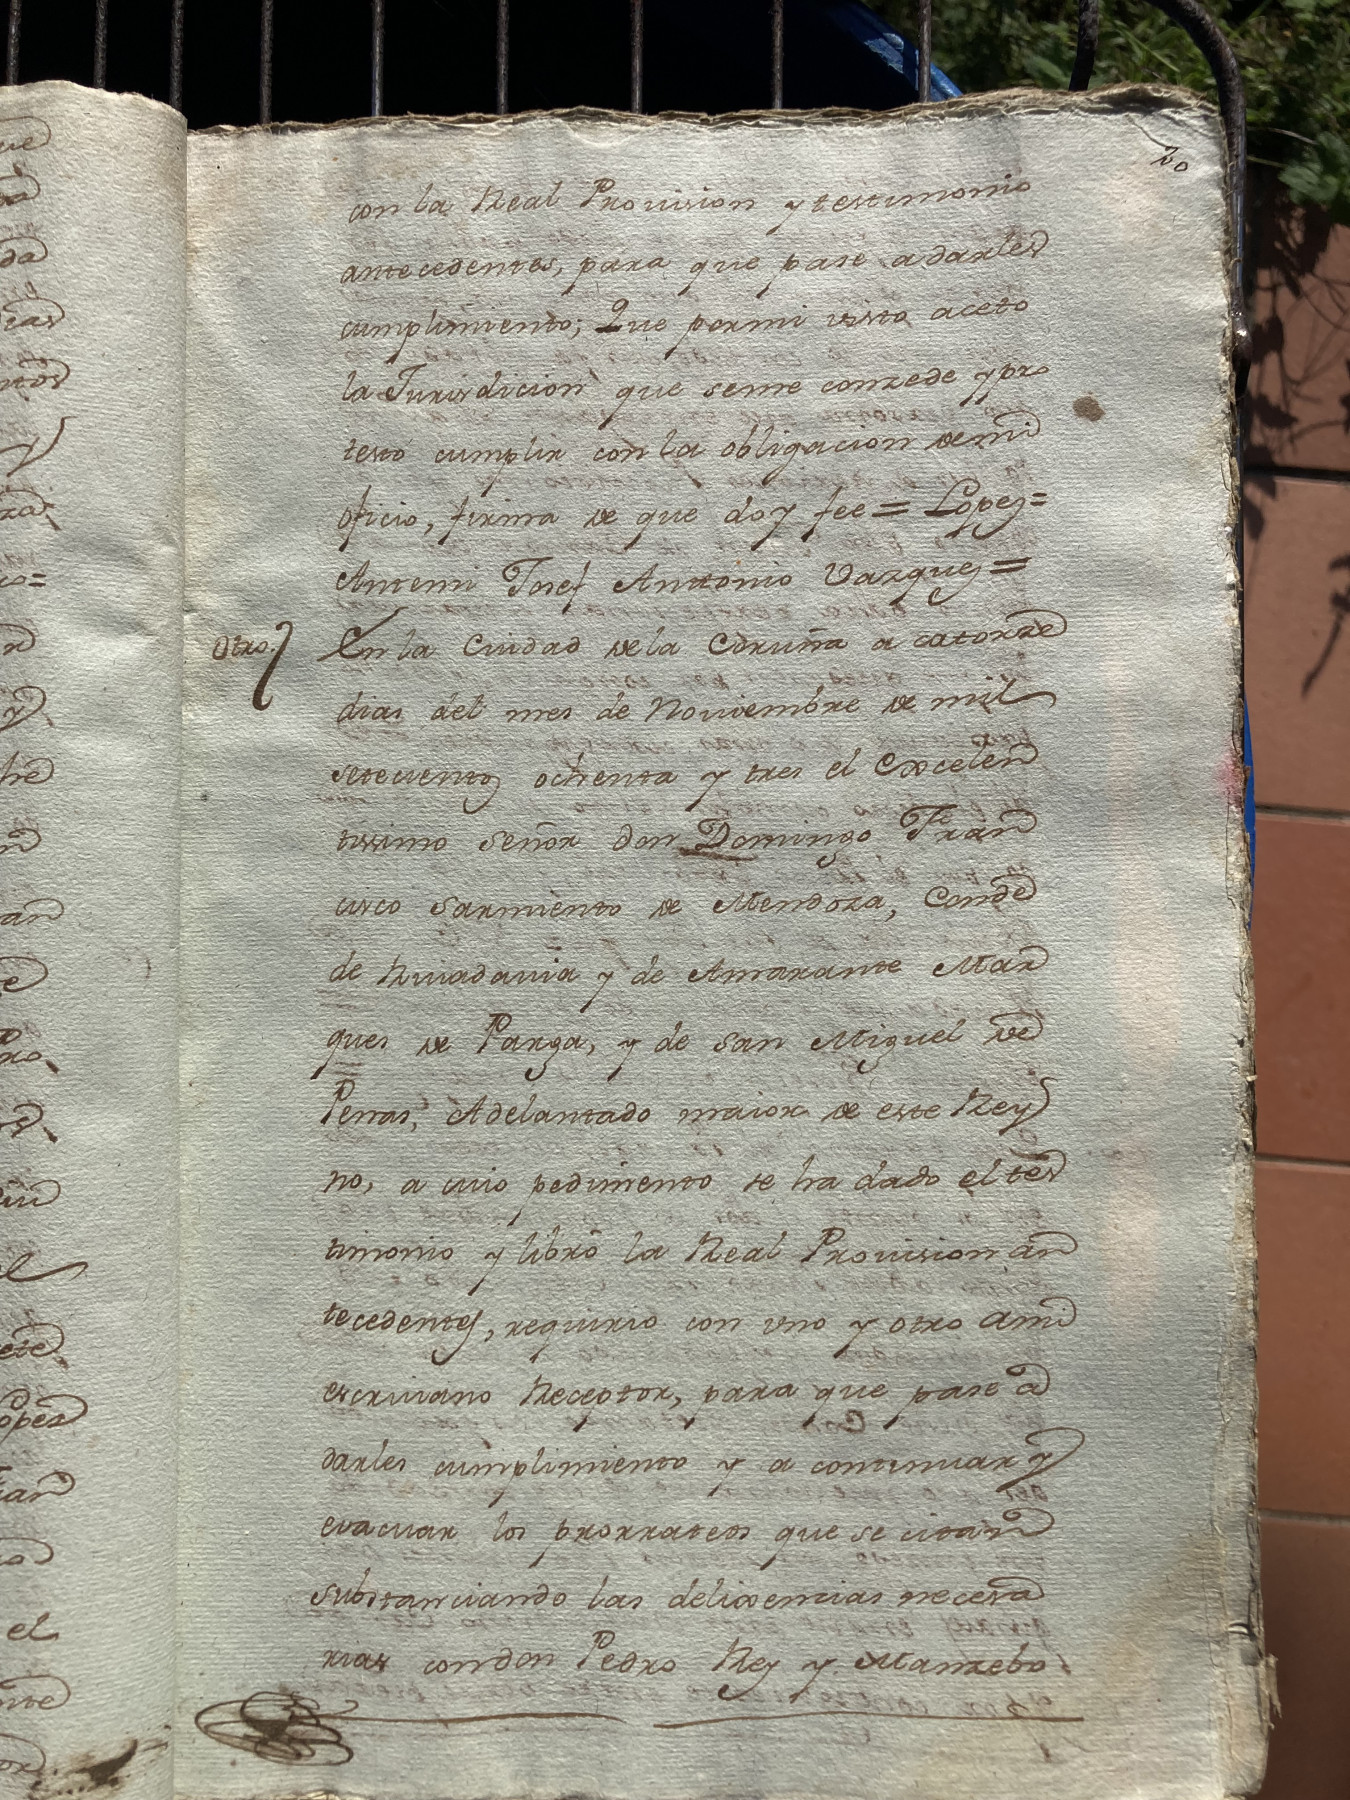 20
con la Real Provision y testimonio
antecedentes, para que pase a darles
cumplimiento; Que pormi visto aceto
la Jurisdicion que seme conzede y pro
testo cumplir con la obligacion de mi
oficio, firma de que doy fee = Lopez =
Antemi Josef Antonio Vazquez =
Otro. En la Ciudad de la Coruña a catorze
dias del mes de Noviembre de mil
setecientos ochenta y tres el Excelen
tissimo señor don Domingo Fran
cisco Sarmiento de Mendoza, Conde
de Rivadavia y de Amarante Mar
ques de Parga, y de San Miguel de
Penas, Adelantado maior de este Rey
no, a cuio pedimento se ha dado el tes
timonio y libró la Real Provision an
tecedentes, requirio con uno y otro ami
escrivano Receptor, para que pase a
darles cumplimiento y a continuar y
evacuar los prorrateos que se citan
substanciando las delixencias necesa
rias con don Pedro Rey y Manzebo